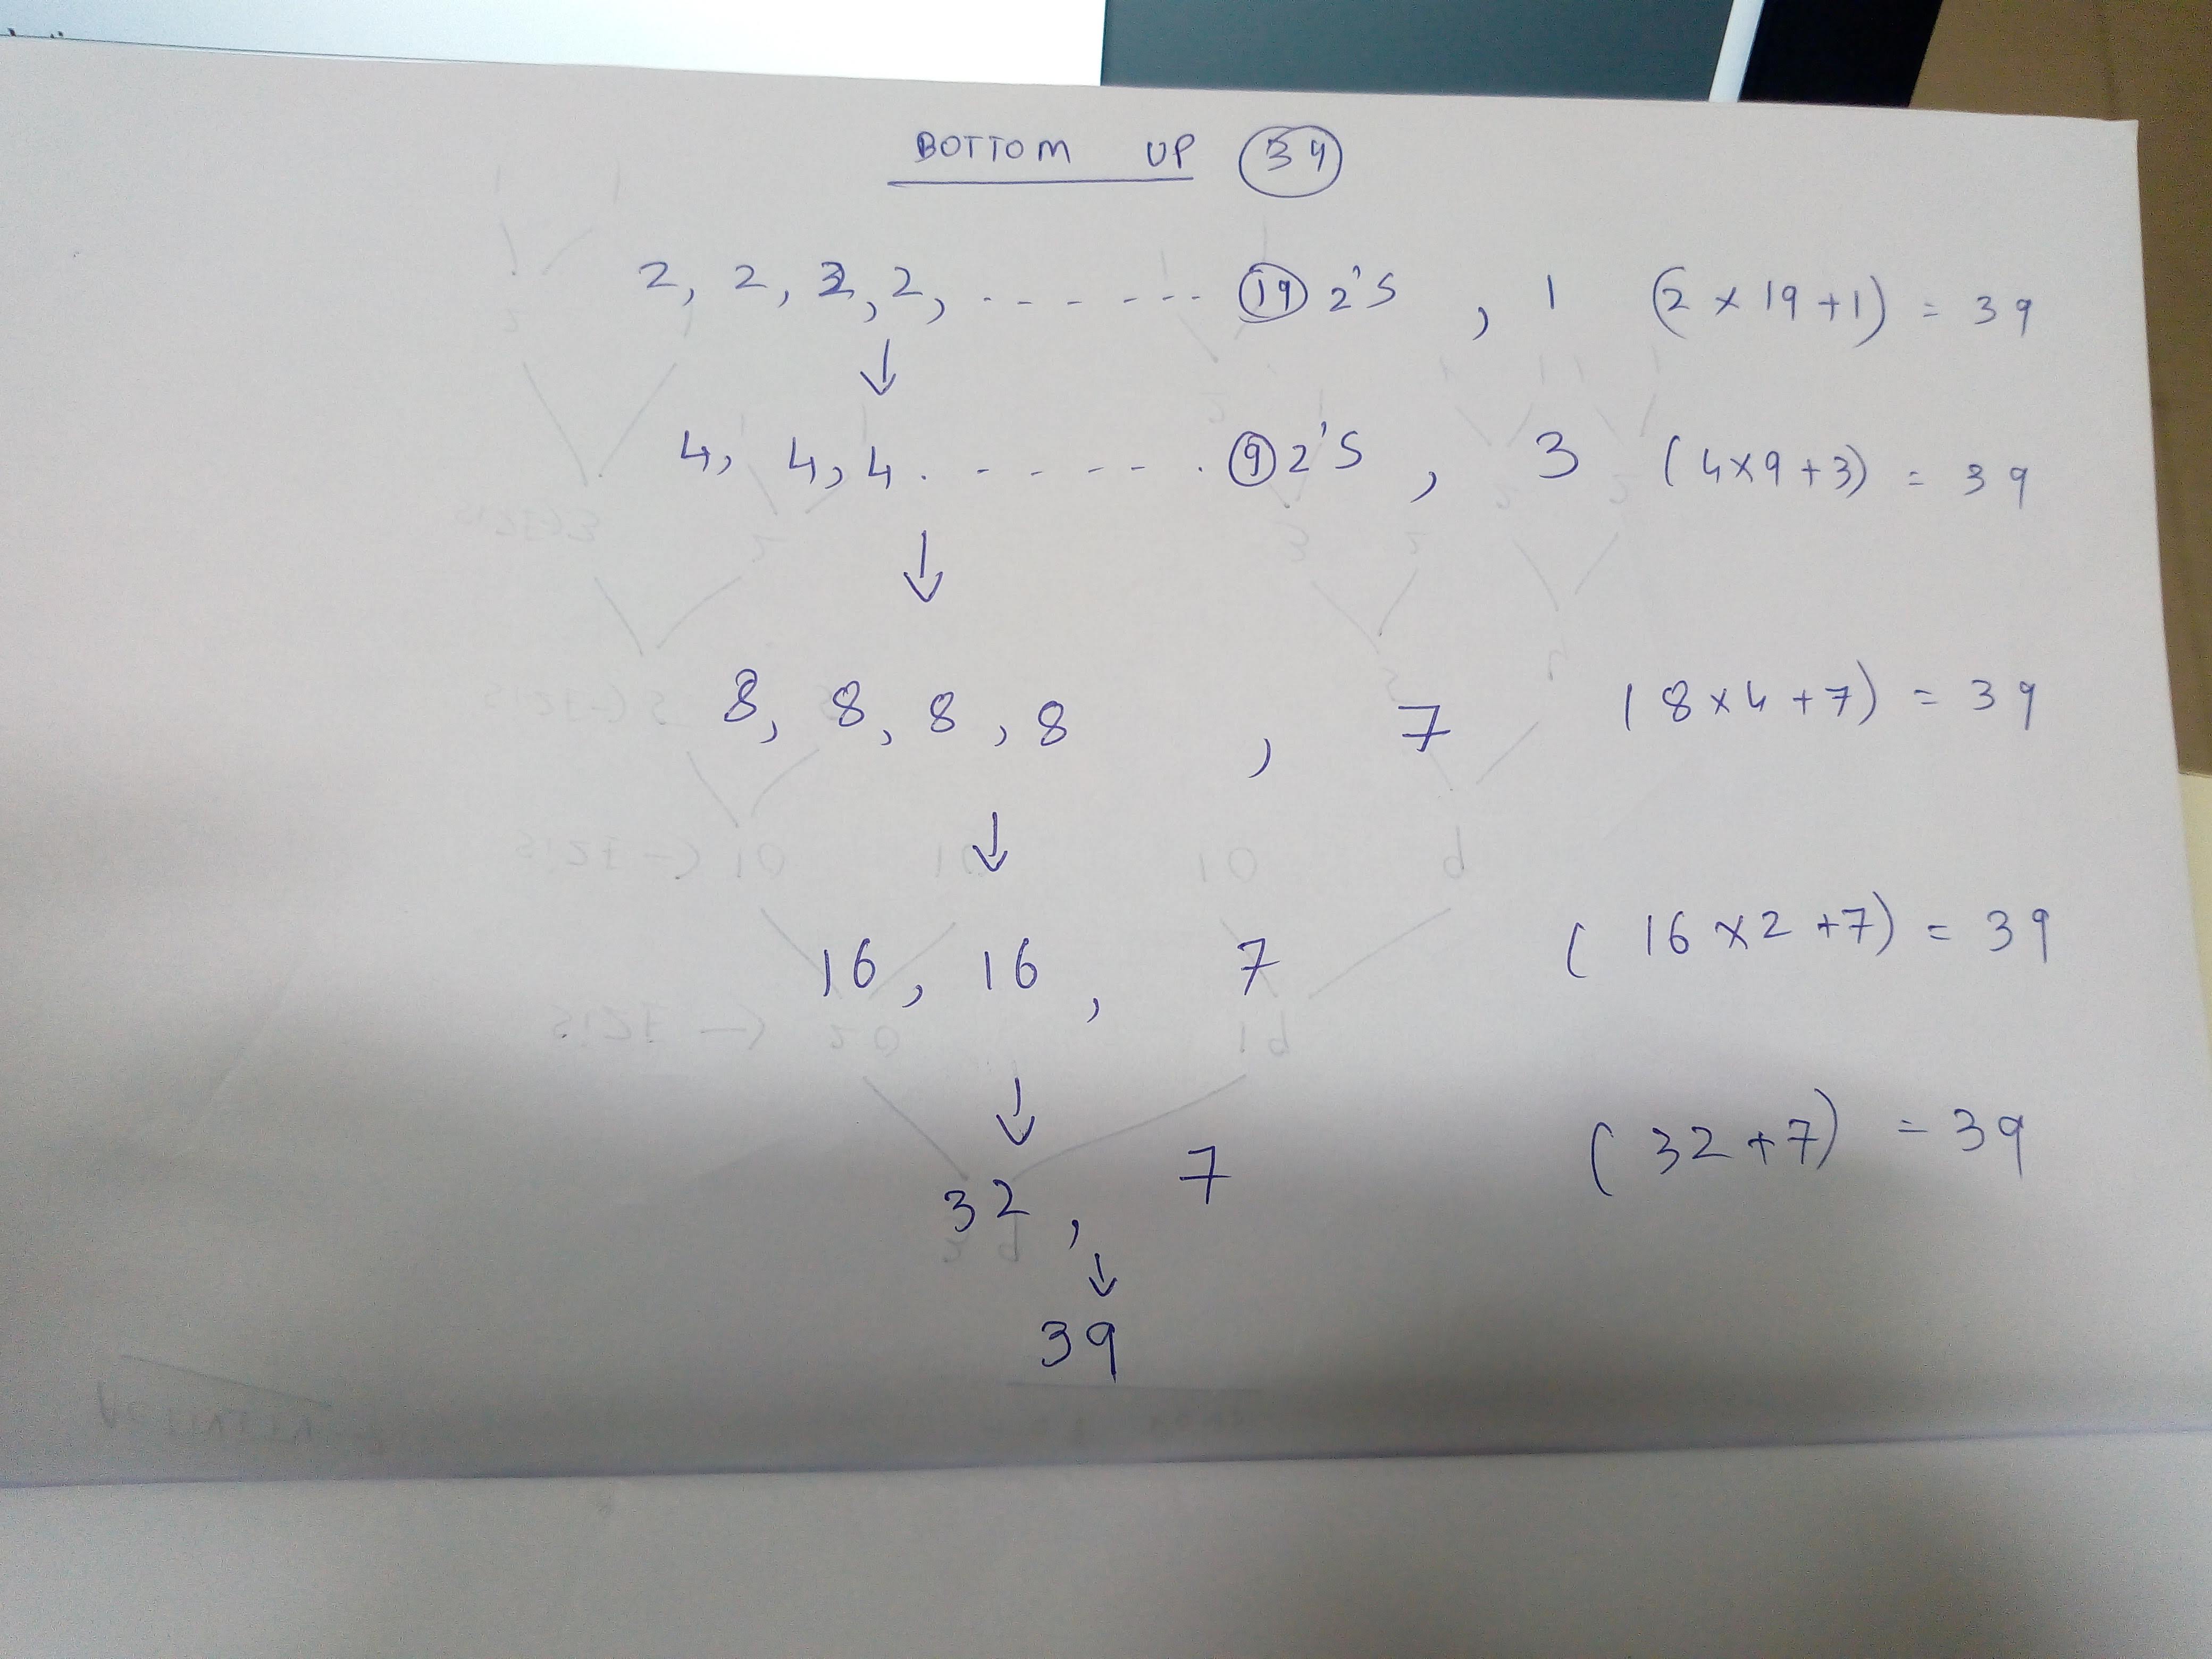 BOTTOM UP 39
2, 2, 2, 2, ------- 19 2's , 1 (2 x 19 + 1) = 39
4, 4, 4 . - - - - - . 9 2's , 3 (4x9 + 3) = 39
8, 8, 8, 8 , 7 (8 x 4 + 7) = 39
16, 16, 7 (16 x 2 + 7) = 39
32, 7 (32 + 7) = 39
39